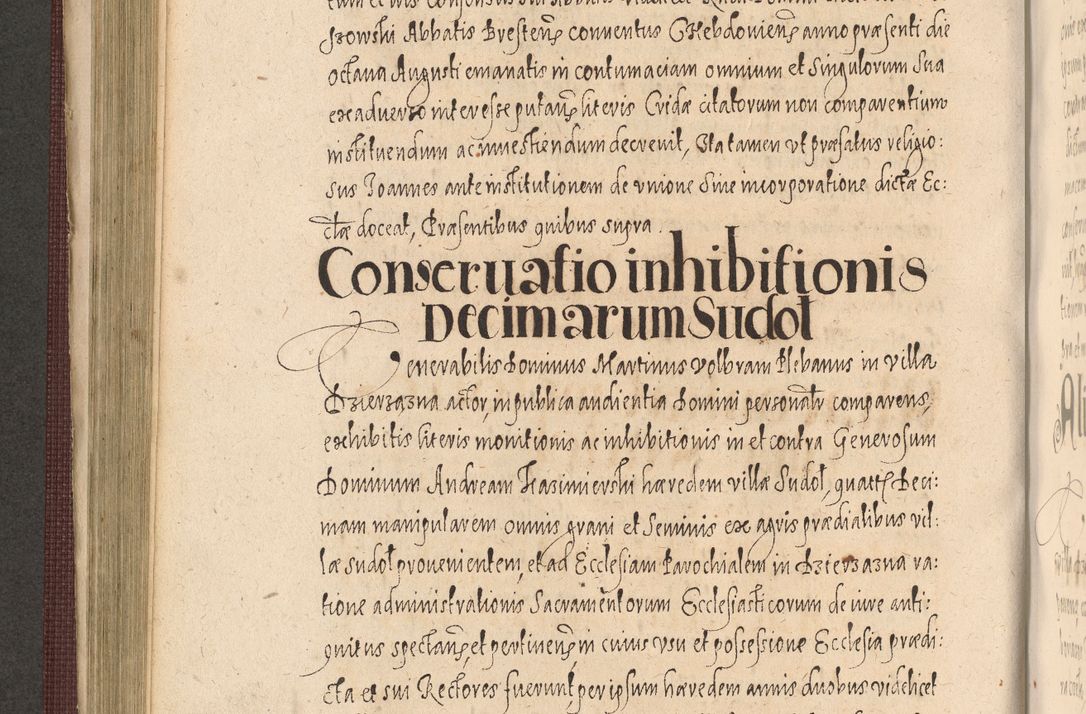 szowski Abbatis Brestens conventus CHebdoviens anno præsenti die
octava Augusti emanatis in contumaciam omnium et singulorum sua
ex adverso interesse putans literis Cridæ citatorum non comparentium
instituendum ac investiendum decrevit, Ita tamen vt præfatus religio:
sus Joannes ante institutionem de vnione sive incorporatione dictæ Ec:
ctæ doceat, Præsentibus quibus supra.
Conseruatio inhibitionis
Decimarum Sudoł
Venerabilis Dominus Martinus Volbram Plebanus in villa
Dzierzązna actor, in publica audientia Domini personalr comparens,
exhibitis literis monitionis ac inhibitionis in et contra Generosum
Dominum Andream Kazimierski hæredem villæ Sudoł, quatt Deci:
mam manipularem omnis grani et Seminis ex agris prædialibus vil:
læ Sudoł provenientem, et ad Ecclesiam Parochialem in Dzierzazna ra:
tione administrationis Sacramentorum Ecclesiasticorum de iure anti:
quitus spectans, et pertinens, in cuius vsu et possessione Ecclesia prædi:
cta et sui Rectores fuerunt, per ipsum hæredem annis duobus videlicet